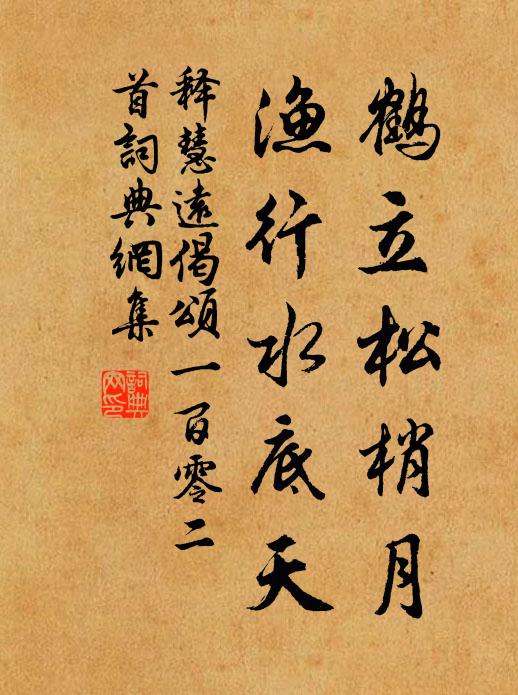 鶴立松梢月
漁行水底天
釋慧遠偈頌一百零二
首詞典網集
詞典網印